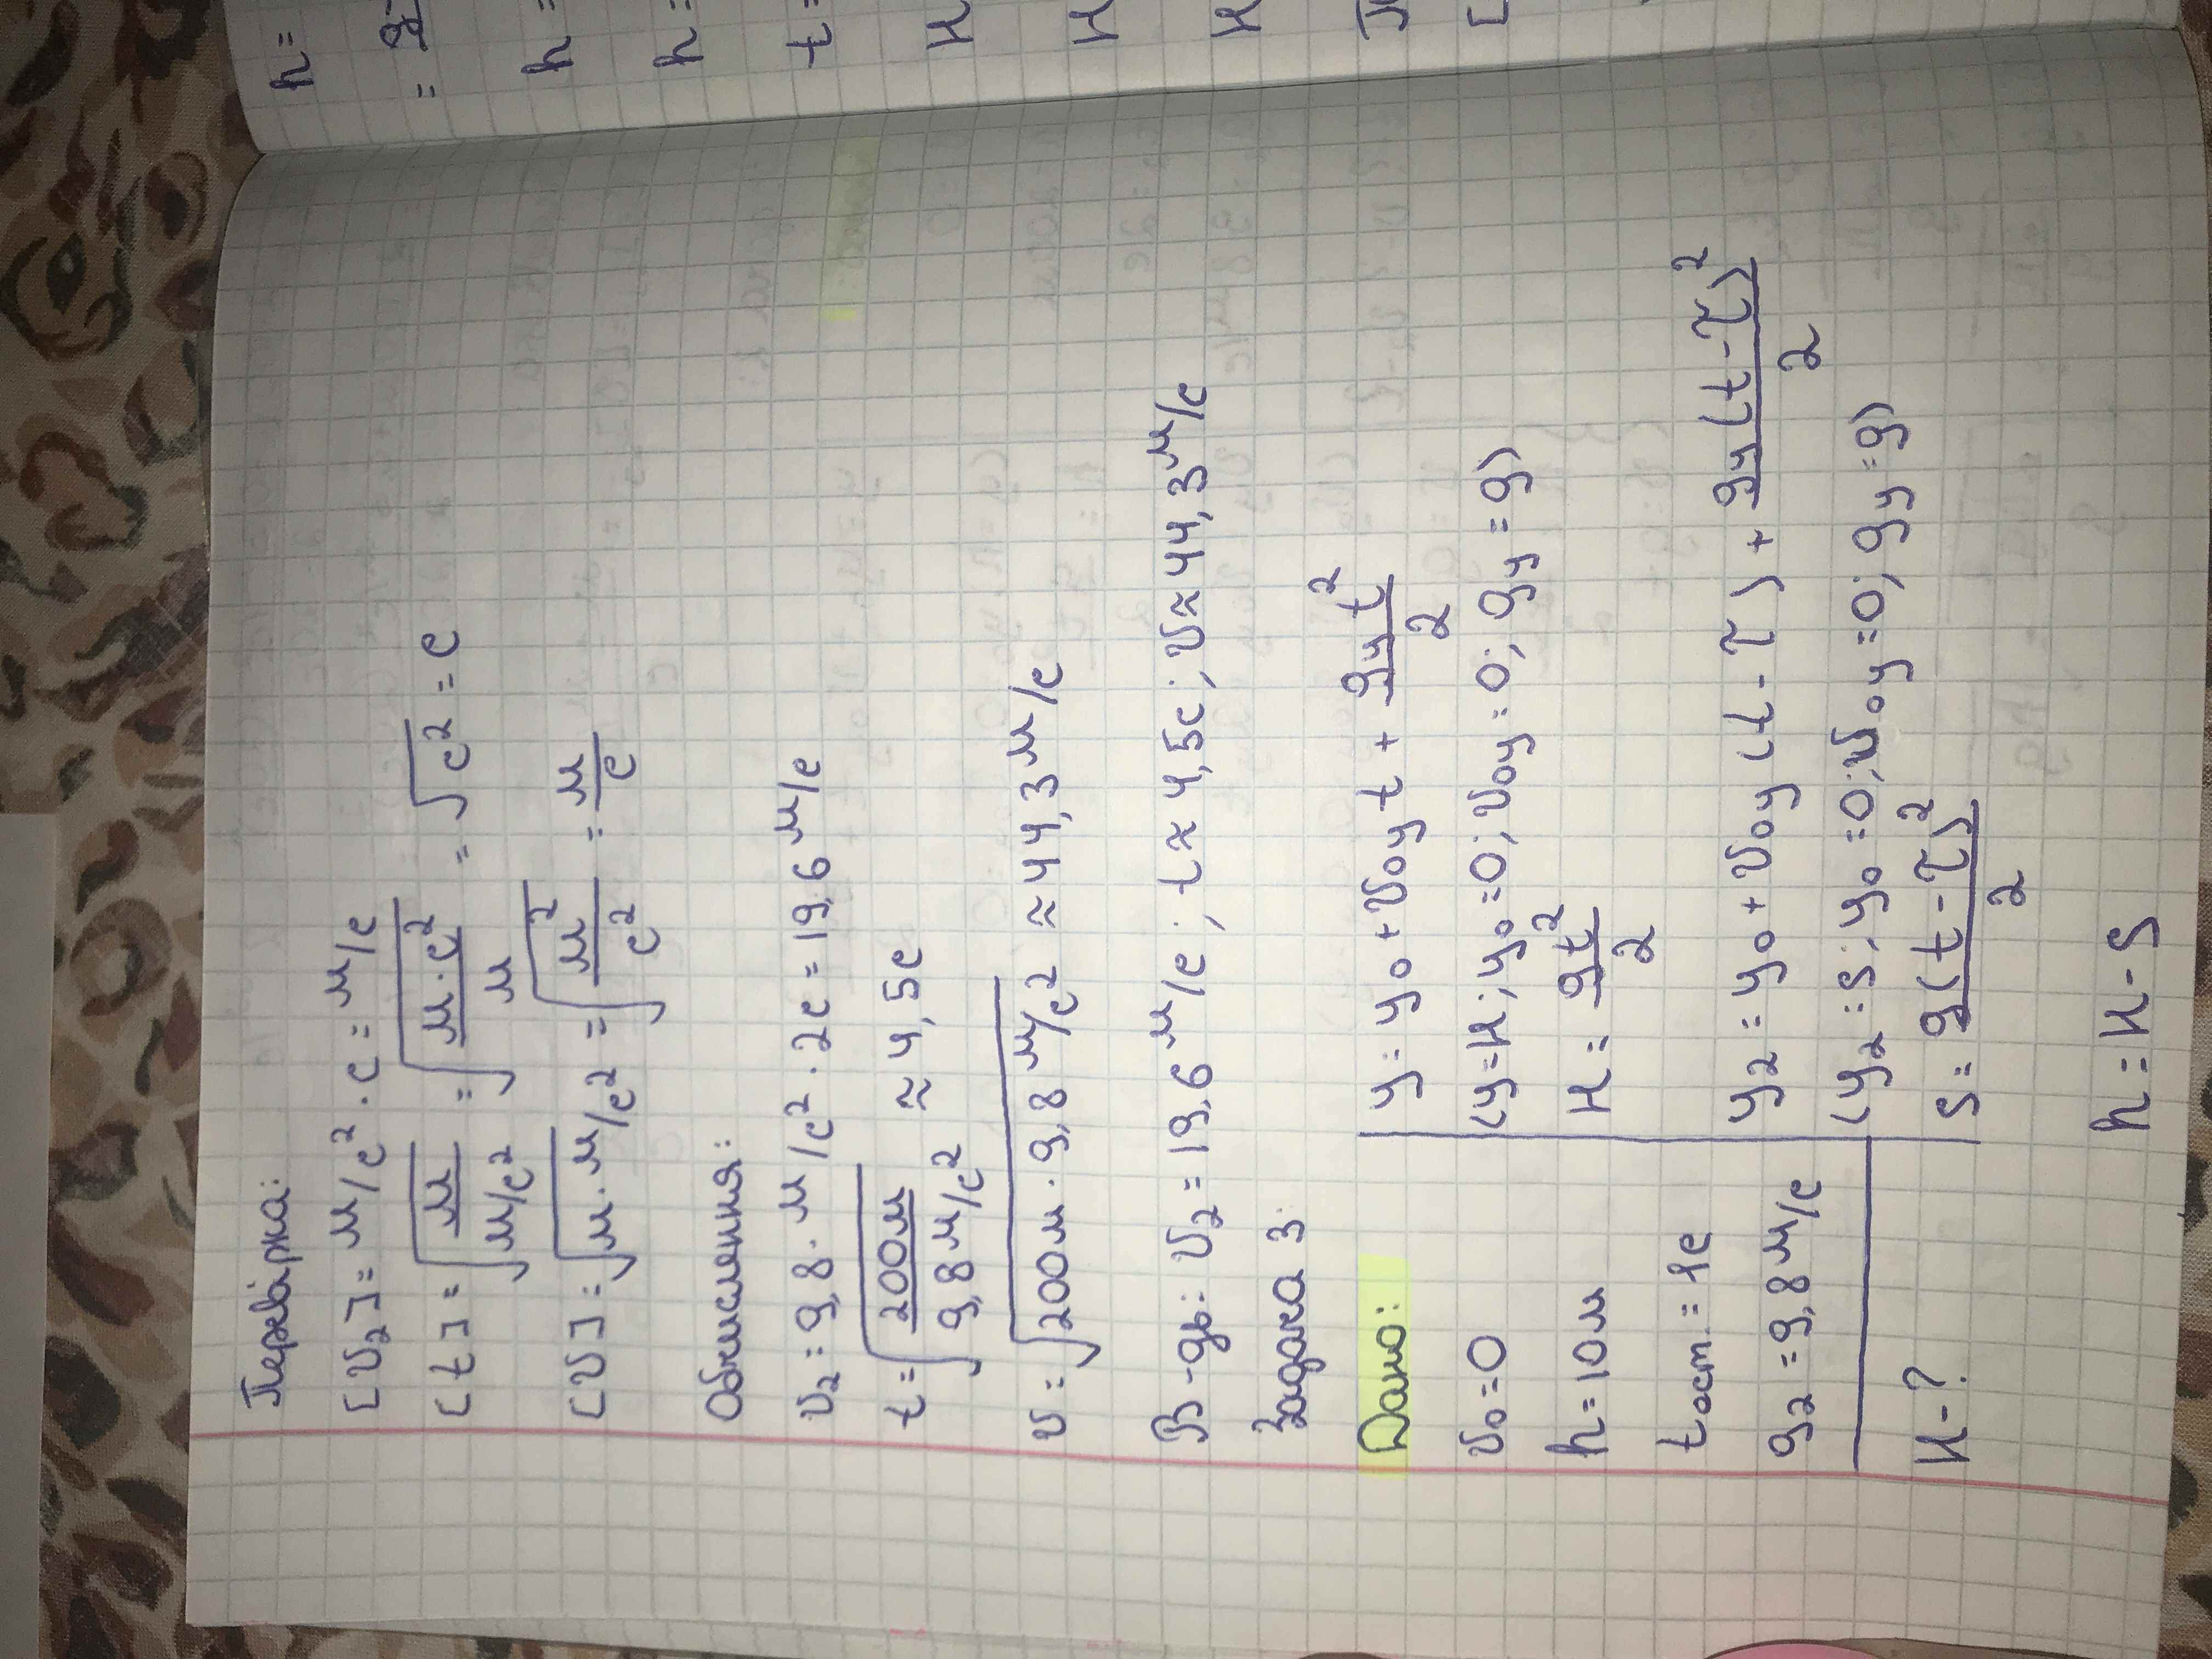 Перевірка:
[v₂] = м/с² · с = м/с
[t] = √(м / м/с²) = √(м·с² / м) = √с² = с
[v] = √(м · м/с²) = √(м²/с²) = м/с
Обчислення:
v₂ = 9,8 · м/с² · 2с = 19,6 м/с
t = √(200м / 9,8 м/с²) ≈ 4,5с
v = √(200м · 9,8 м/с²) ≈ 44,3 м/с
В-дь: v₂ = 19,6 м/с; t ≈ 4,5с; v ≈ 44,3 м/с
Задача 3:
Дано:
v₀ = 0
h = 10м
t ост. = 1с
g₂ = 9,8 м/с
H - ?
y = y₀ + v₀y t + gy t² / 2
(y = H; y₀ = 0; v₀y = 0; gy = g)
H = gt² / 2
y₂ = y₀ + v₀y (t - τ) + gy (t - τ)² / 2
(y₂ = S; y₀ = 0; v₀y = 0; gy = g)
S = g(t - τ)² / 2
h = H - S
h =
=
h =
h =
t =
H
H
H
[